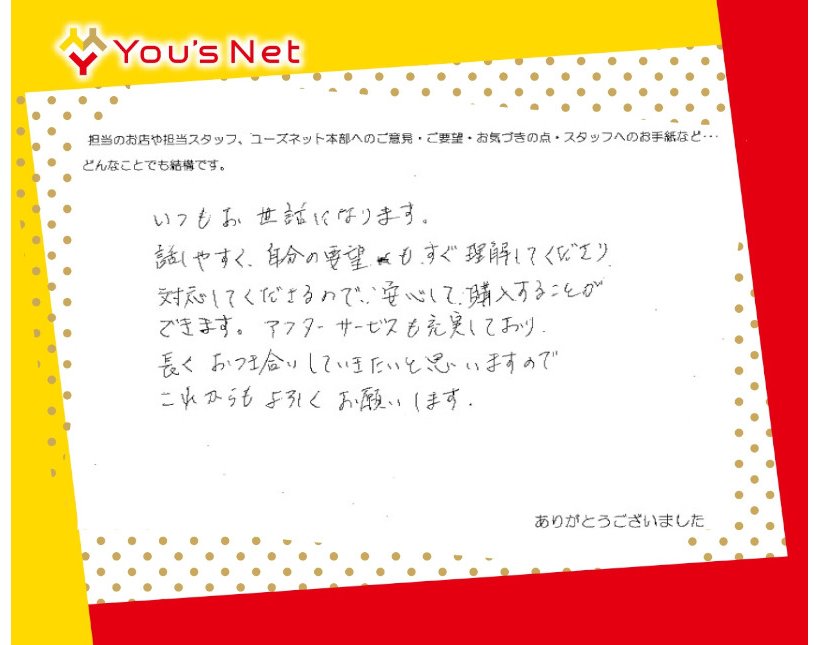 You's Net
担当のお店や担当スタッフ、ユーズネット本部へのご意見・ご要望・お気づきの点・スタッフへのお手紙など…
どんなことでも結構です。
いつもお世話になります。
話しやすく、自分の要望もすぐ理解してくださり
対応してくださるので、安心して購入することが
できます。アフターサービスも充実しており、
長くおつき合いしていきたいと思いますので
これからもよろしくお願いします。
ありがとうございました